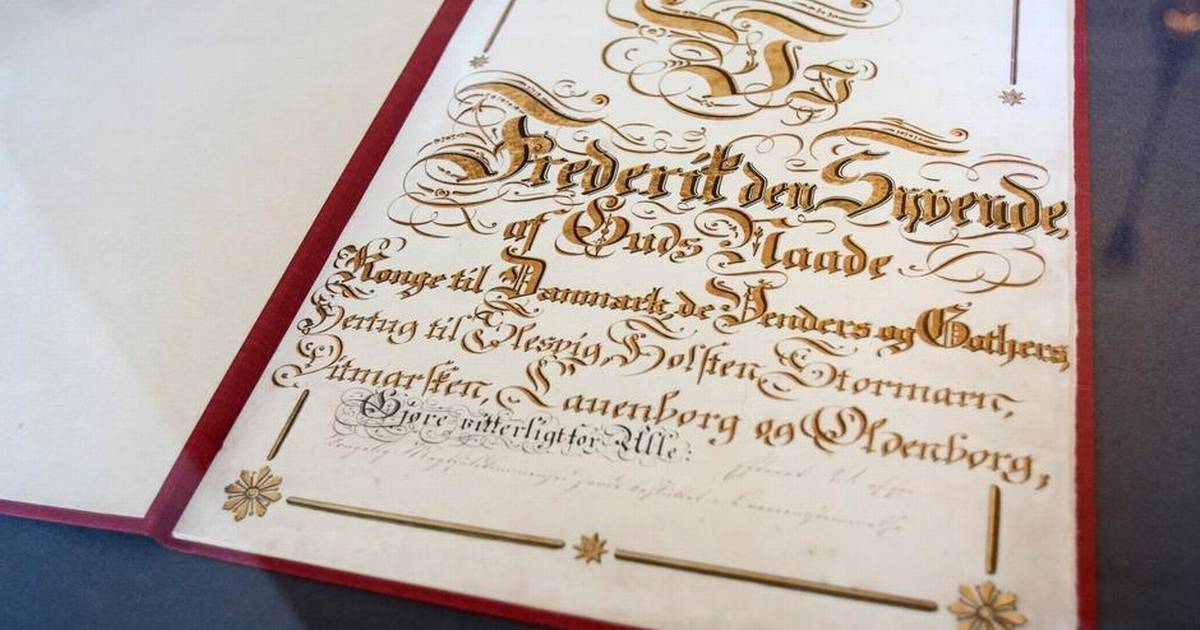 Vi
Frederik den Syvende,
af Guds Naade
Konge til Danmark, de Venders og Gothers,
Hertug til Slesvig, Holsten, Stormarn,
Ditmarsken, Lauenborg og Oldenborg,
Gjøre vitterligt for Alle: